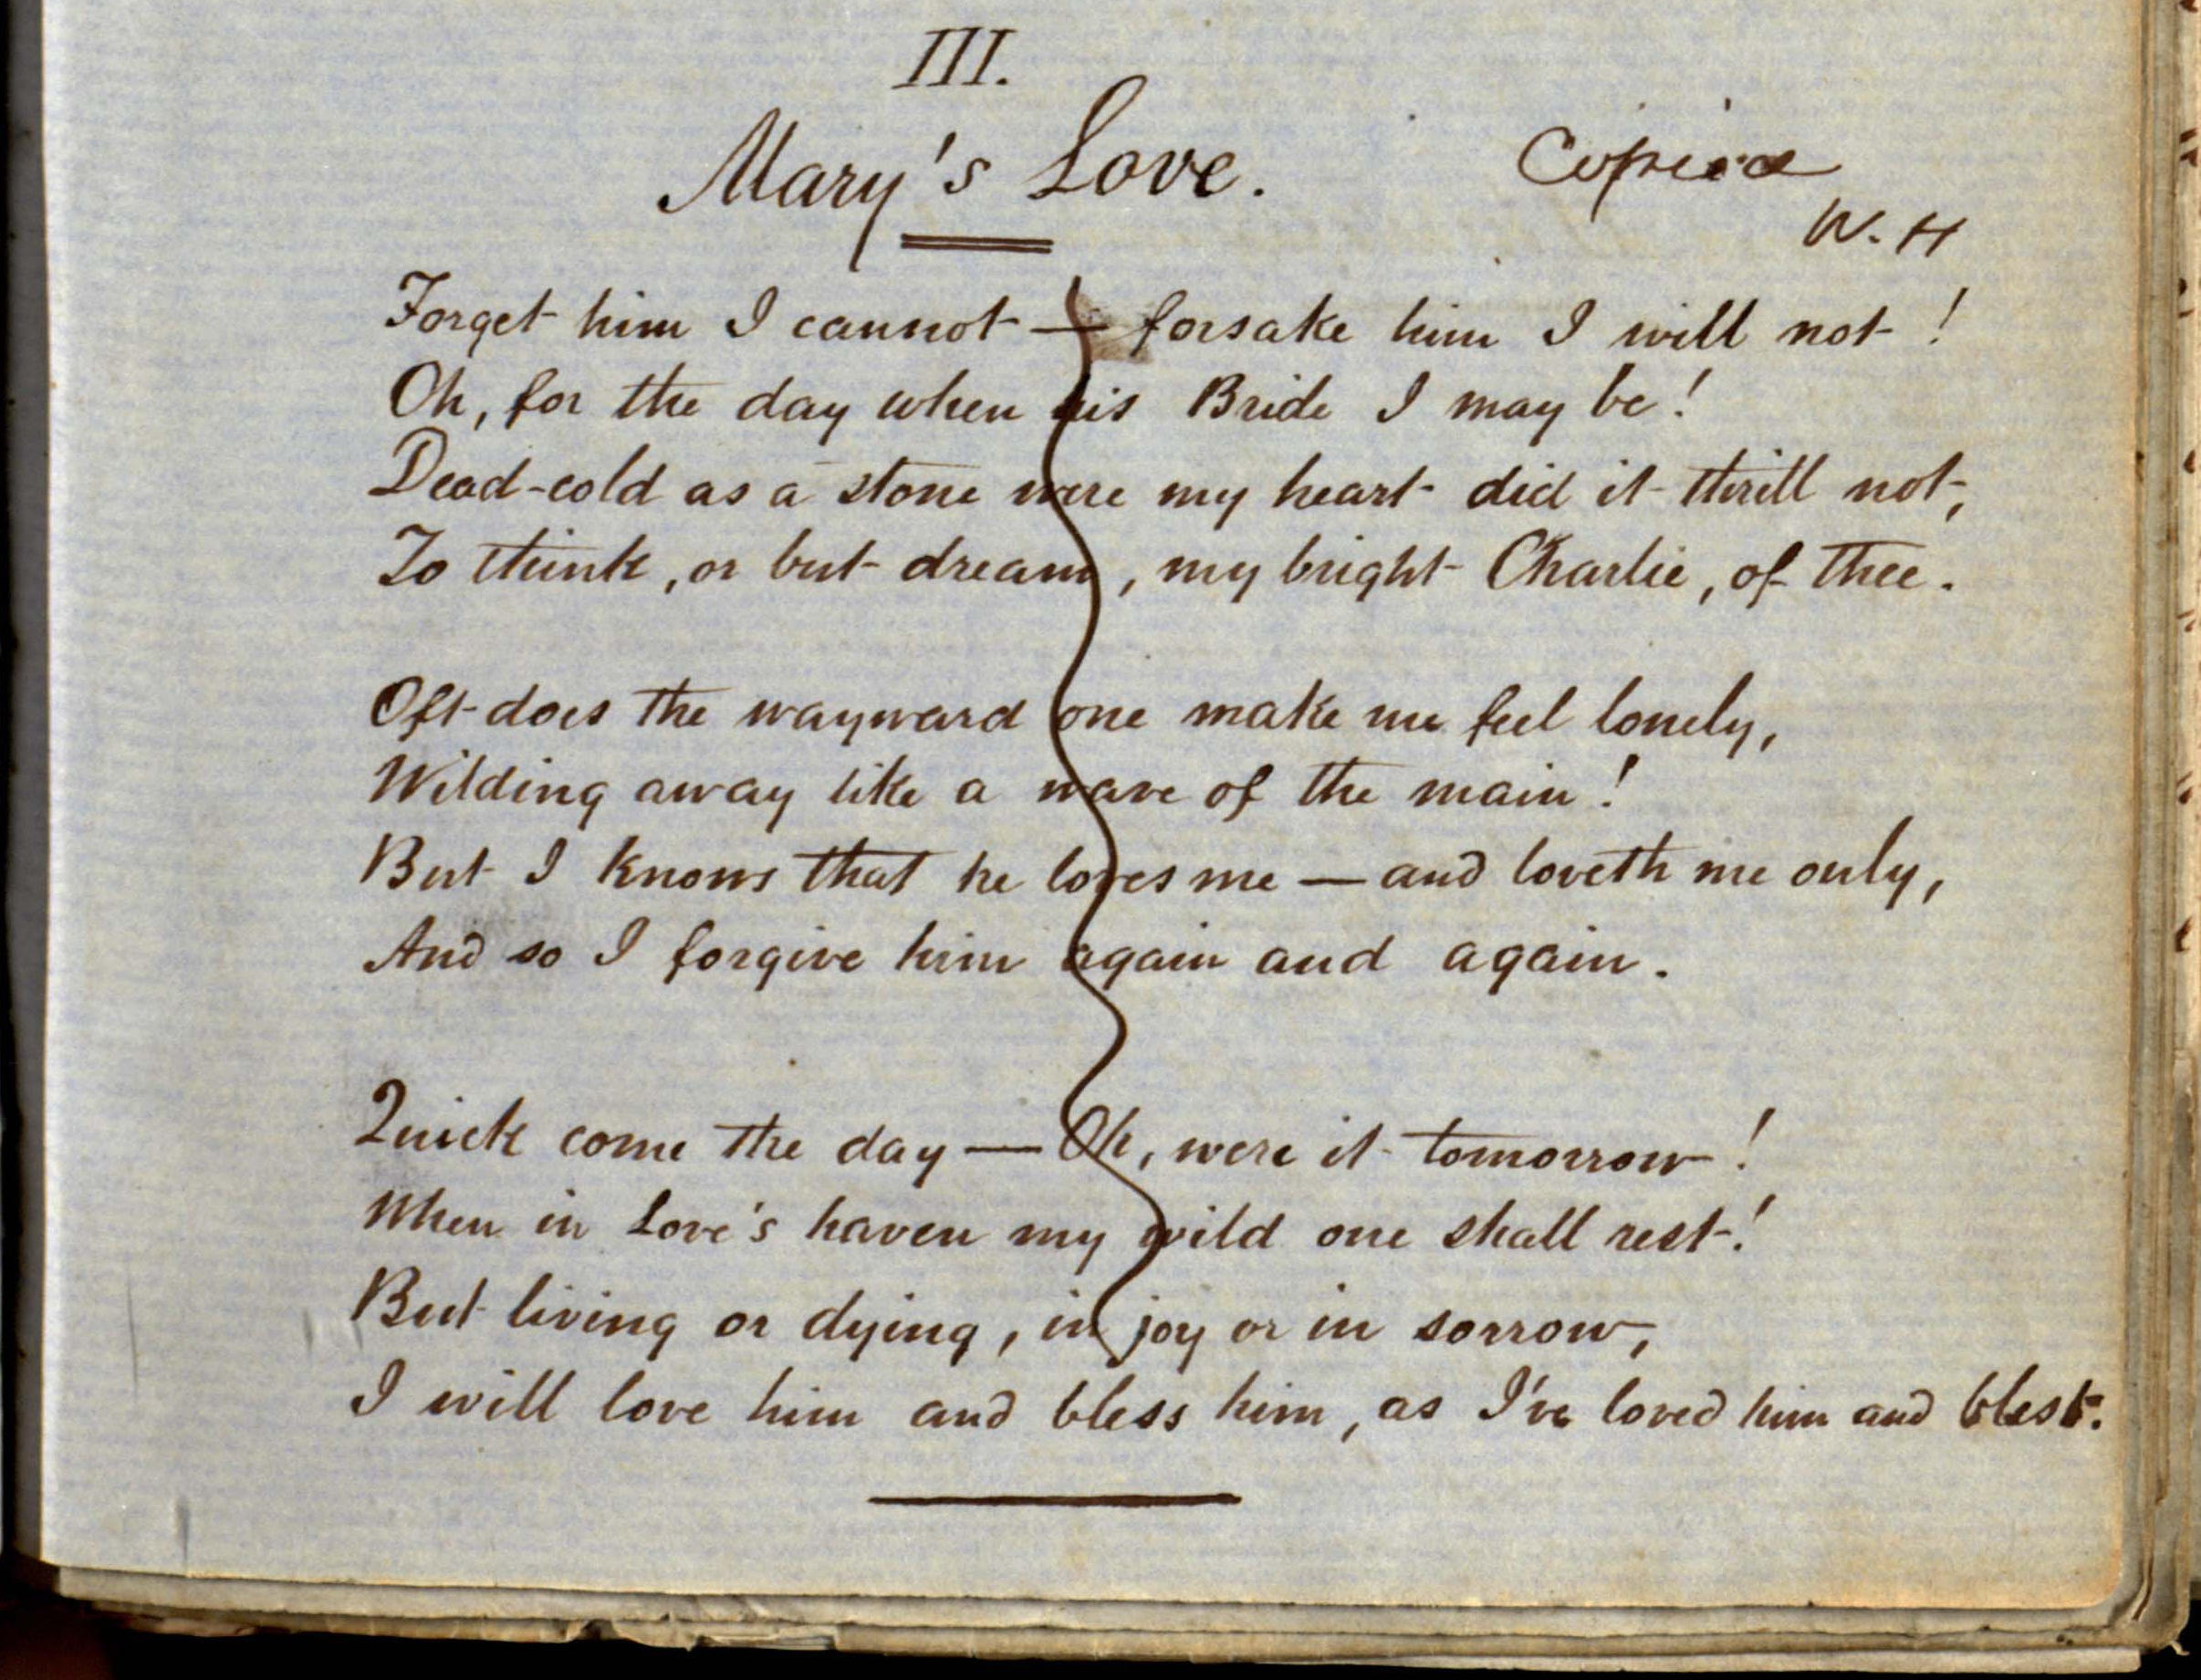 III.
Mary's Love.
Copied
W. H
Forget him I cannot — forsake him I will not!
Oh, for the day when his Bride I may be!
Dead-cold as a stone were my heart did it thrill not,
To think, or but dream, my bright Charlie, of thee.
Oft does the wayward one make me feel lonely,
Wilding away like a wave of the main!
But I knows that he loves me — and loveth me only,
And so I forgive him again and again.
Quick come the day — Oh, were it tomorrow!
When in Love's haven my wild one shall rest!
But living or dying, in joy or in sorrow,
I will love him and bless him, as I've loved him and blest.